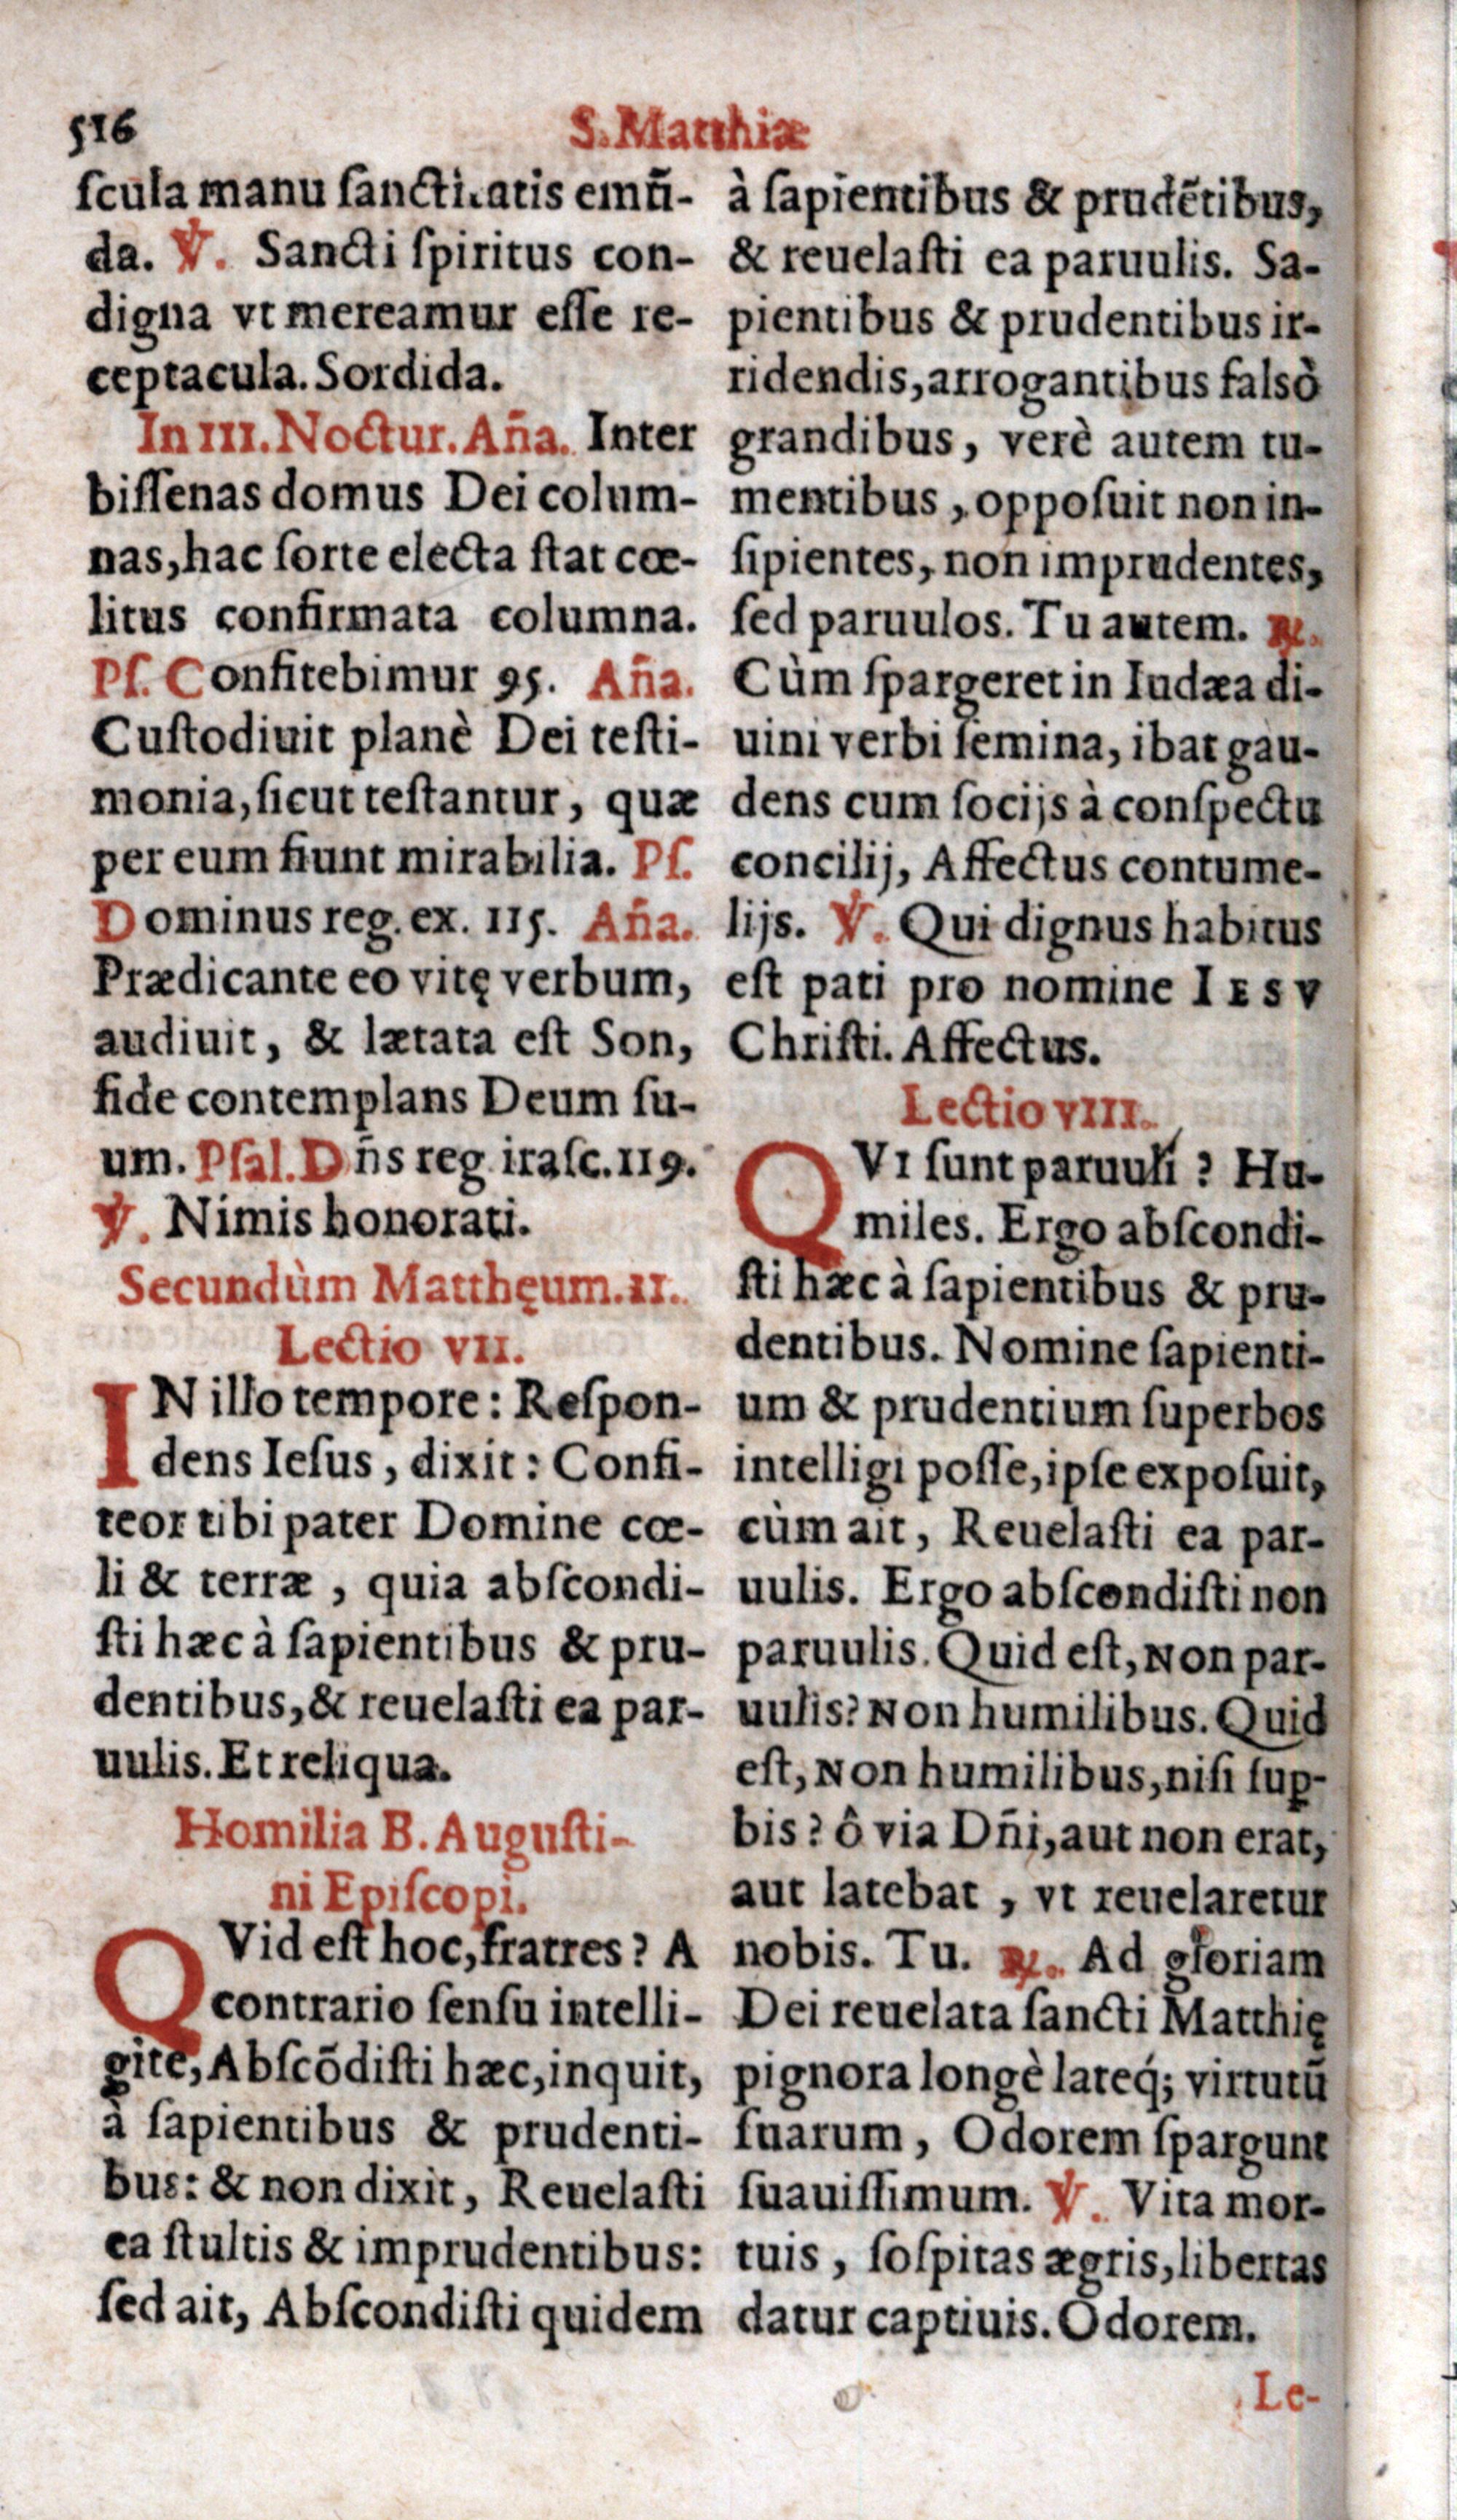 516
S. Matthiæ
ſcula manu ſanctitatis emũ-
da. ℣. Sancti ſpiritus con-
digna vt mereamur eſſe re-
ceptacula. Sordida.
In III. Noctur. Aña. Inter
biſſenas domus Dei colum-
nas, hac ſorte electa ſtat cœ-
litus confirmata columna.
Pſ. Confitebimur 95. Aña.
Cuſtodiuit planè Dei teſti-
monia, ſicut teſtantur, quæ
per eum fiunt mirabilia. Pſ.
Dominus reg. ex. 115. Aña.
Prædicante eo vitę verbum,
audiuit, & lætata eſt Son,
fide contemplans Deum ſu-
um. Pſal. Dñs reg iraſc. 119.
℣. Nimis honorati.
Secundùm Matthęum. 11.
Lectio VII.
IN illo tempore: Reſpon-
dens Ieſus, dixit: Confi-
teor tibi pater Domine cœ-
li & terræ, quia abſcondi-
ſti hæc à ſapientibus & pru-
dentibus, & reuelaſti ea par-
uulis. Et reliqua.
Homilia B. Auguſti-
ni Epiſcopi.
QVid eſt hoc, fratres? A
contrario ſenſu intelli-
gite, Abſcõdiſti hæc, inquit,
à ſapientibus & prudenti-
bus: & non dixit, Reuelaſti
ea ſtultis & imprudentibus:
ſed ait, Abſcondiſti quidem
à ſapientibus & prudẽtibus,
& reuelaſti ea paruulis. Sa-
pientibus & prudentibus ir-
ridendis, arrogantibus falsò
grandibus, verè autem tu-
mentibus, oppoſuit non in-
ſipientes, non imprudentes,
ſed paruulos. Tu autem. ℟.
Cùm ſpargeret in Iudæa di-
uini verbi ſemina, ibat gau-
dens cum ſocijs à conſpectu
concilij, Affectus contume-
lijs. ℣. Qui dignus habitus
eſt pati pro nomine IESV
Chriſti. Affectus.
Lectio VIII.
QVI ſunt paruuli? Hu-
miles. Ergo abſcondi-
ſti hæc à ſapientibus & pru-
dentibus. Nomine ſapienti-
um & prudentium ſuperbos
intelligi poſſe, ipſe expoſuit,
cùm ait, Reuelaſti ea par-
uulis. Ergo abſcondiſti non
paruulis. Quid eſt, Non par-
uulis? Non humilibus. Quid
eſt, Non humilibus, niſi ſuꝑ-
bis? ô via Dñi, aut non erat,
aut latebat, vt reuelaretur
nobis. Tu. ℟. Ad gloriam
Dei reuelata ſancti Matthię
pignora longè lateq́; virtutũ
ſuarum, Odorem ſpargunt
ſuauiſſimum. ℣. Vita mor-
tuis, ſoſpitas ægris, libertas
datur captiuis. Odorem.
Le-